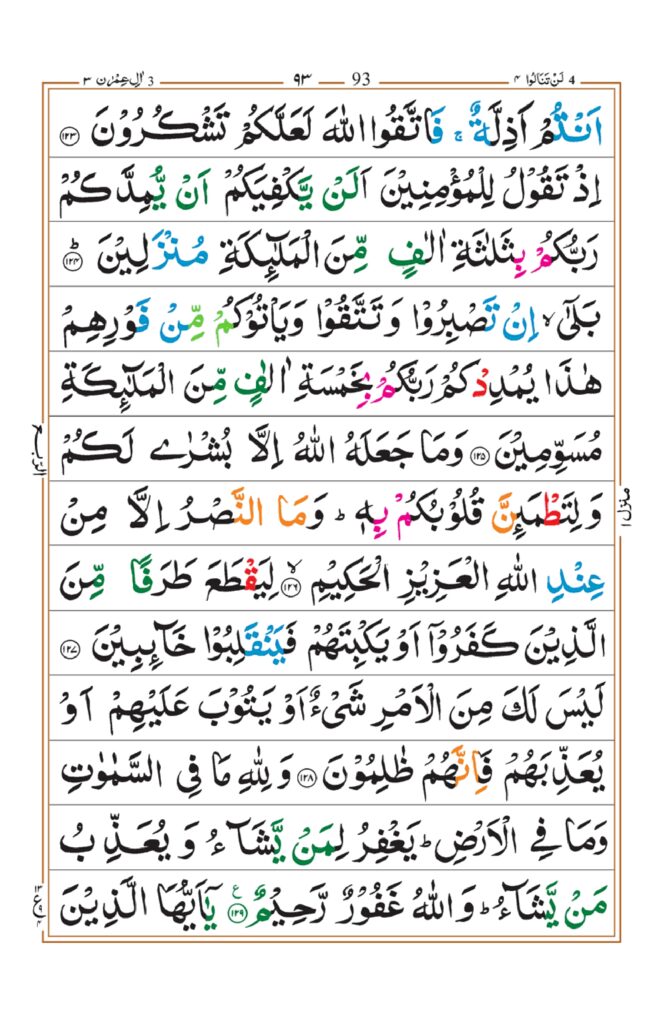 لَنْ تَنَالُوا ٤ 4 93 ٩٣ اٰلِ عِمْرٰن ٣ 3
اَنْتُمْ اَذِلَّةٌ ۚ فَاتَّقُوا اللّٰهَ لَعَلَّكُمْ تَشْكُرُوْنَ ۝۱۲۳
اِذْ تَقُوْلُ لِلْمُؤْمِنِيْنَ اَلَنْ يَّكْفِيَكُمْ اَنْ يُّمِدَّكُمْ
رَبُّكُمْ بِثَلٰثَةِ اٰلٰفٍ مِّنَ الْمَلٰٓئِكَةِ مُنْزَلِيْنَ ۝ؕ۱۲۴
بَلٰٓى ۙ اِنْ تَصْبِرُوْا وَ تَتَّقُوْا وَيَاْتُوْكُمْ مِّنْ فَوْرِهِمْ
هٰذَا يُمْدِدْكُمْ رَبُّكُمْ بِخَمْسَةِ اٰلٰفٍ مِّنَ الْمَلٰٓئِكَةِ
مُسَوِّمِيْنَ ۝۱۲۵ وَمَا جَعَلَهُ اللّٰهُ اِلَّا بُشْرٰى لَكُمْ
وَ لِتَطْمَئِنَّ قُلُوْبُكُمْ بِهٖ ؕ وَمَا النَّصْرُ اِلَّا مِنْ
عِنْدِ اللّٰهِ الْعَزِيْزِ الْحَكِيْمِ ۝ۙ۱۲۶ لِيَقْطَعَ طَرَفًا مِّنَ
الَّذِيْنَ كَفَرُوْٓا اَوْ يَكْبِتَهُمْ فَيَنْقَلِبُوْا خَآئِبِيْنَ ۝۱۲۷
لَيْسَ لَكَ مِنَ الْاَمْرِ شَىْءٌ اَوْ يَتُوْبَ عَلَيْهِمْ اَوْ
يُعَذِّبَهُمْ فَاِنَّهُمْ ظٰلِمُوْنَ ۝۱۲۸ وَ لِلّٰهِ مَا فِى السَّمٰوٰتِ
وَمَا فِى الْاَرْضِ ؕ يَغْفِرُ لِمَنْ يَّشَآءُ وَ يُعَذِّبُ
مَنْ يَّشَآءُ ؕ وَ اللّٰهُ غَفُوْرٌ رَّحِيْمٌ ۝۱۲۹ ع يٰۤاَيُّهَا الَّذِيْنَ
الرّبع
منزل ١